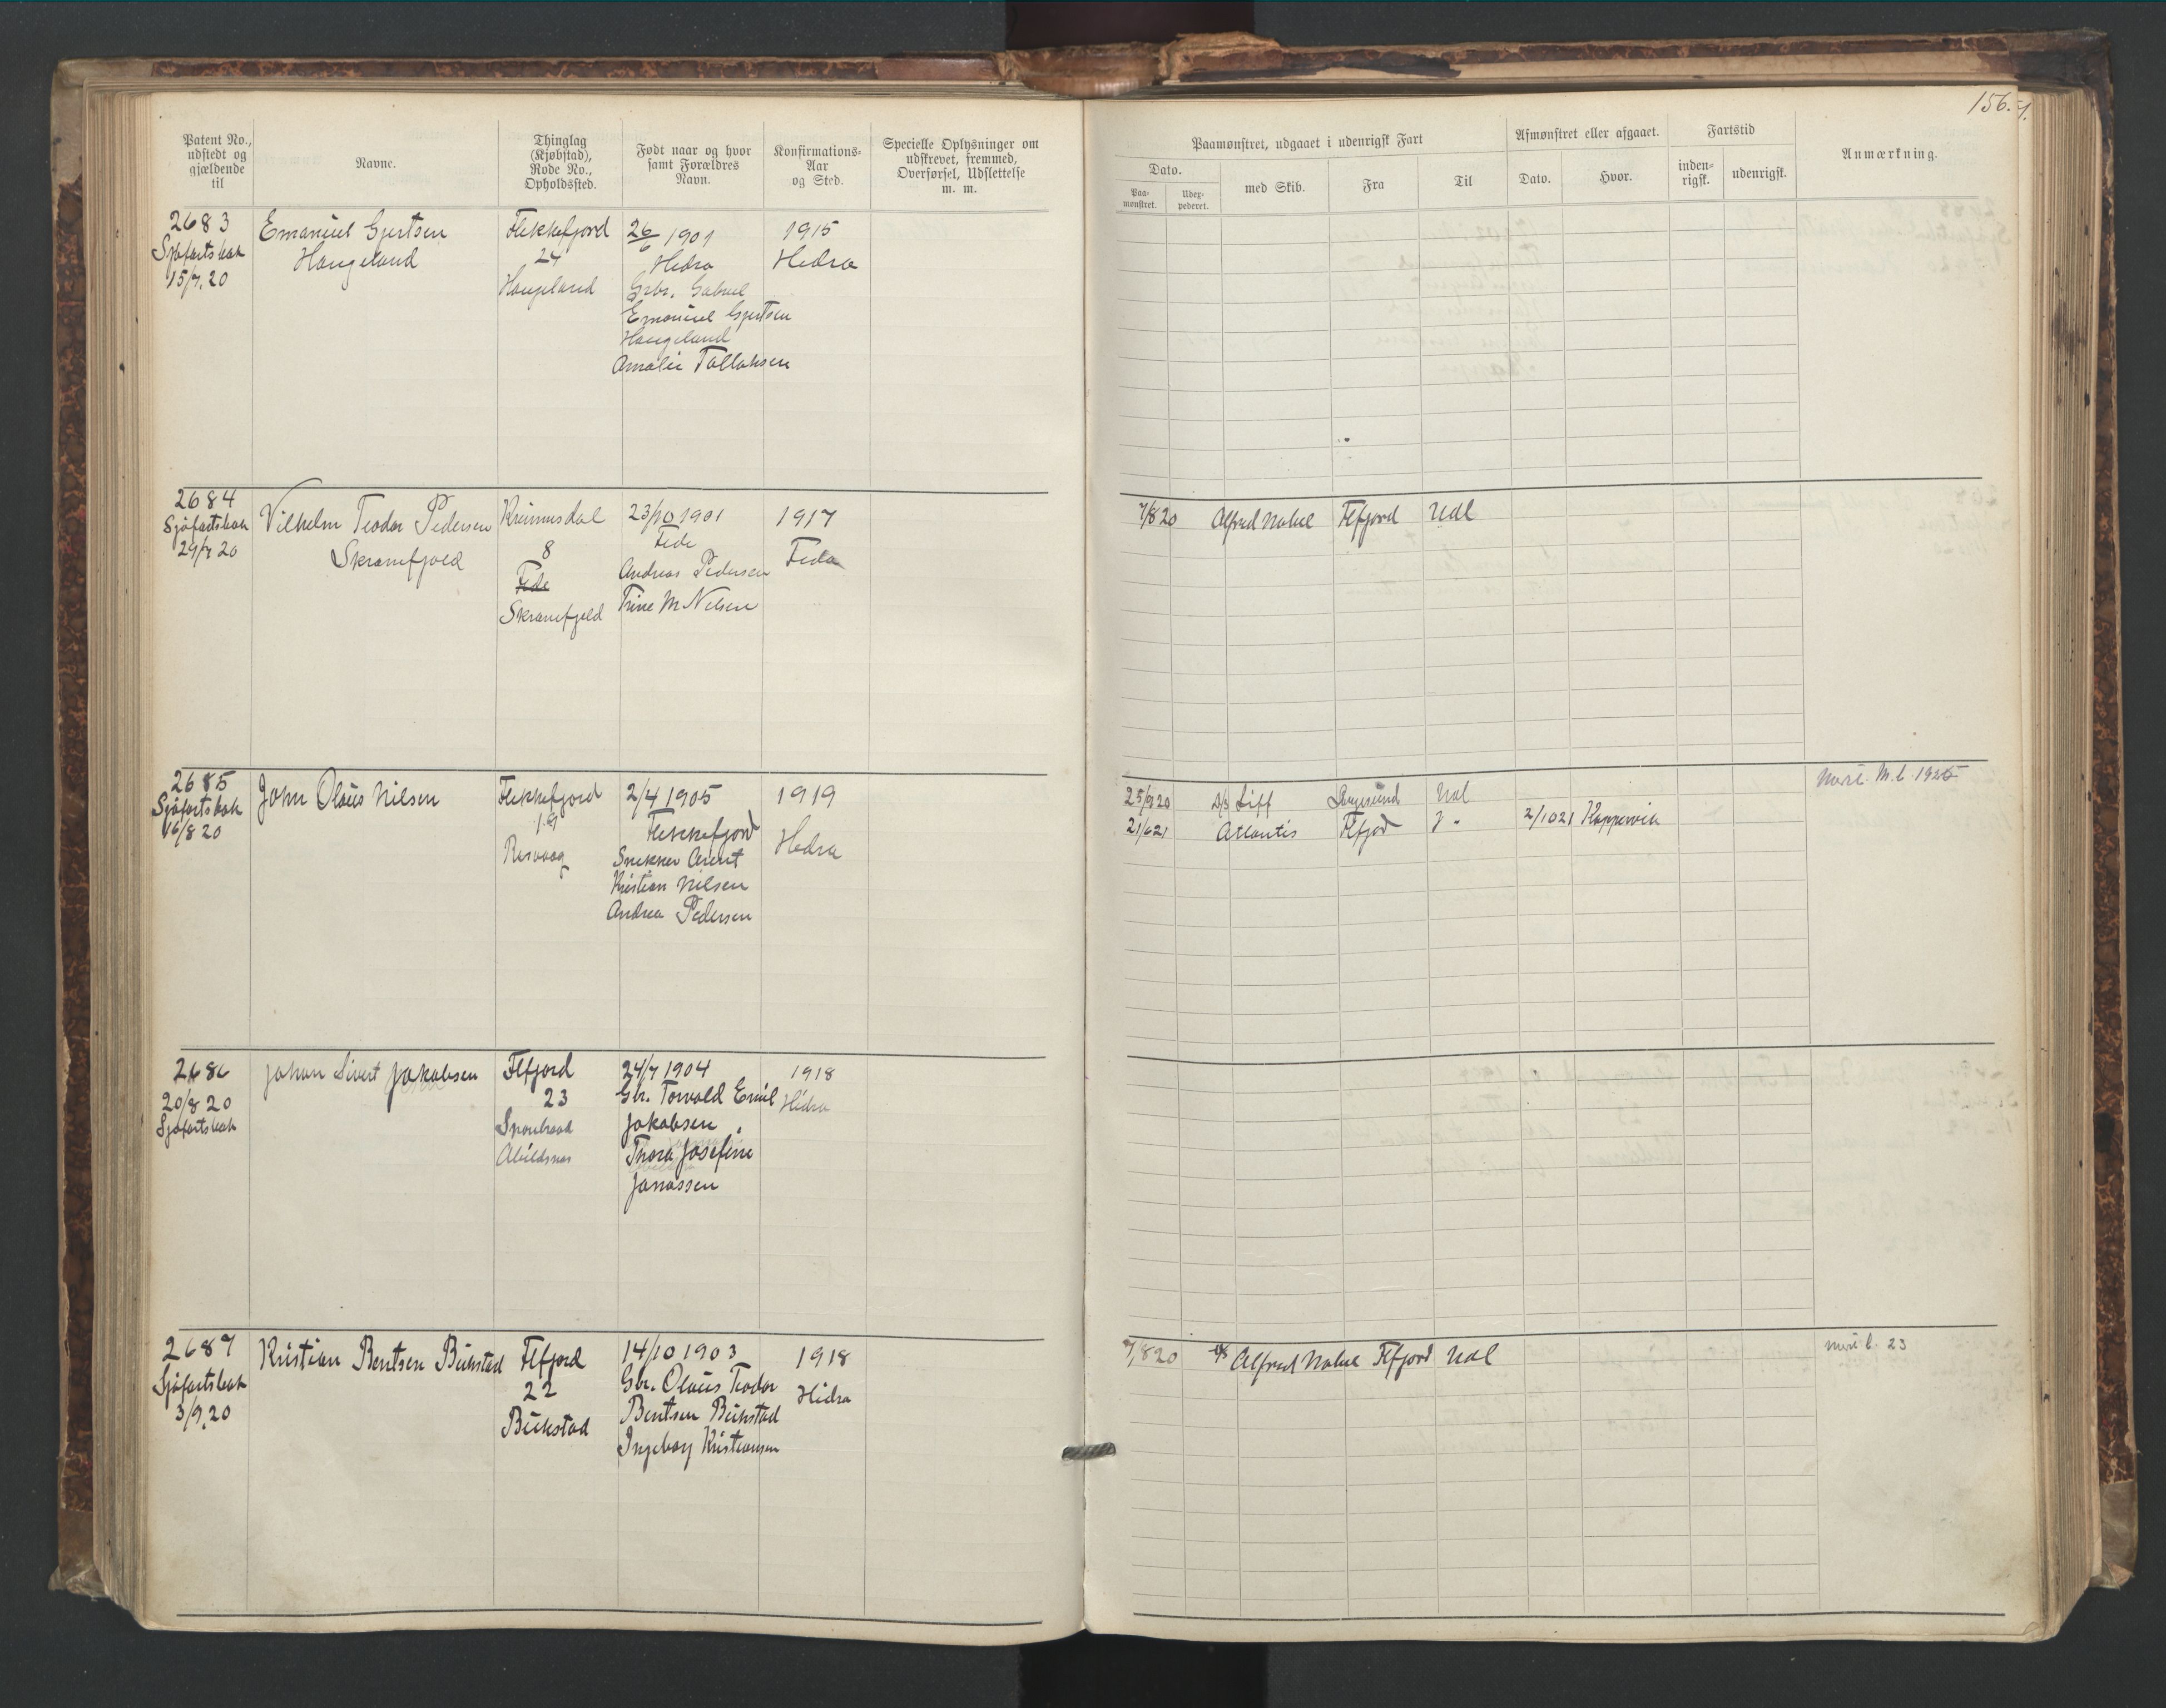 156.
Patent No., udstedt og gjældende til
Navne.
Thinglag (Kjøbstad), Rode No., Opholdssted.
Født naar og hvor samt Forældres Navn.
Konfirmations-Aar og Sted.
Specielle Oplysninger om udskrevet, fremmed, Overførsel, Udslettelse m. m.
Paamønstret, udgaaet i udenrigsk Fart
Dato.
Paamønstret.
Udexpederet.
med Skib.
Fra
Til
Afmønstret eller afgaaet.
Dato.
Hvor.
Fartstid
indenrigsk.
udenrigsk.
Anmærkning.
2683
Sjøfartsbok
15/7.20
Emanuel Gjertsen
Haugeland
Flekkefjord
24
Haugeland
26/6 1901
Hedra
Grbr. Gabriel
Emanuel Gjertsen
Haugeland
Amalie Tallaksen
1915
Hedra
2684
Sjøfartsbok
29/7 20
Vilhelm Teodor Pedersen
Skranefjeld
8
Fede
Skranefjeld
23/10 1901
Fede
Andreas Pedersen
Trine M Nilsen
1917
Feda
7/8 20 Alfred Nobel Flfjord Udl
2685
Sjøfartsbok
16/8 20
John Olaus Nilsen
Flekkefjord
19
Rasvaag
2/4 1905
Flekkefjord
Snekker
Kristian Nilsen
Andrea Pedersen
1919
Hedra
25/9 20 D/S Siff Udl
21/6 21 Atlantis Flfjord 2/10 21 Koppervik
M. l. 1925
2686
20/8 20
Sjøfartsbok
Johan Sivert Jakobsen
Flfjord
23
Abildsnes
24/7 1904
Gbr. Torvald Emil
Jakobsen
Thora Josefine
Janassen
1918
Hidra
2687
Sjøfartsbok
3/9.20
Kristian Bentsen Bukstad
Flfjord
22
Bukstad
14/10 1903
Gbr. Olaus Teodor
Bentsen Bukstad
Ingeborg Kristiansen
1918
Hidra
7/8 20 Alfred Nobel Flfjord Udl
23